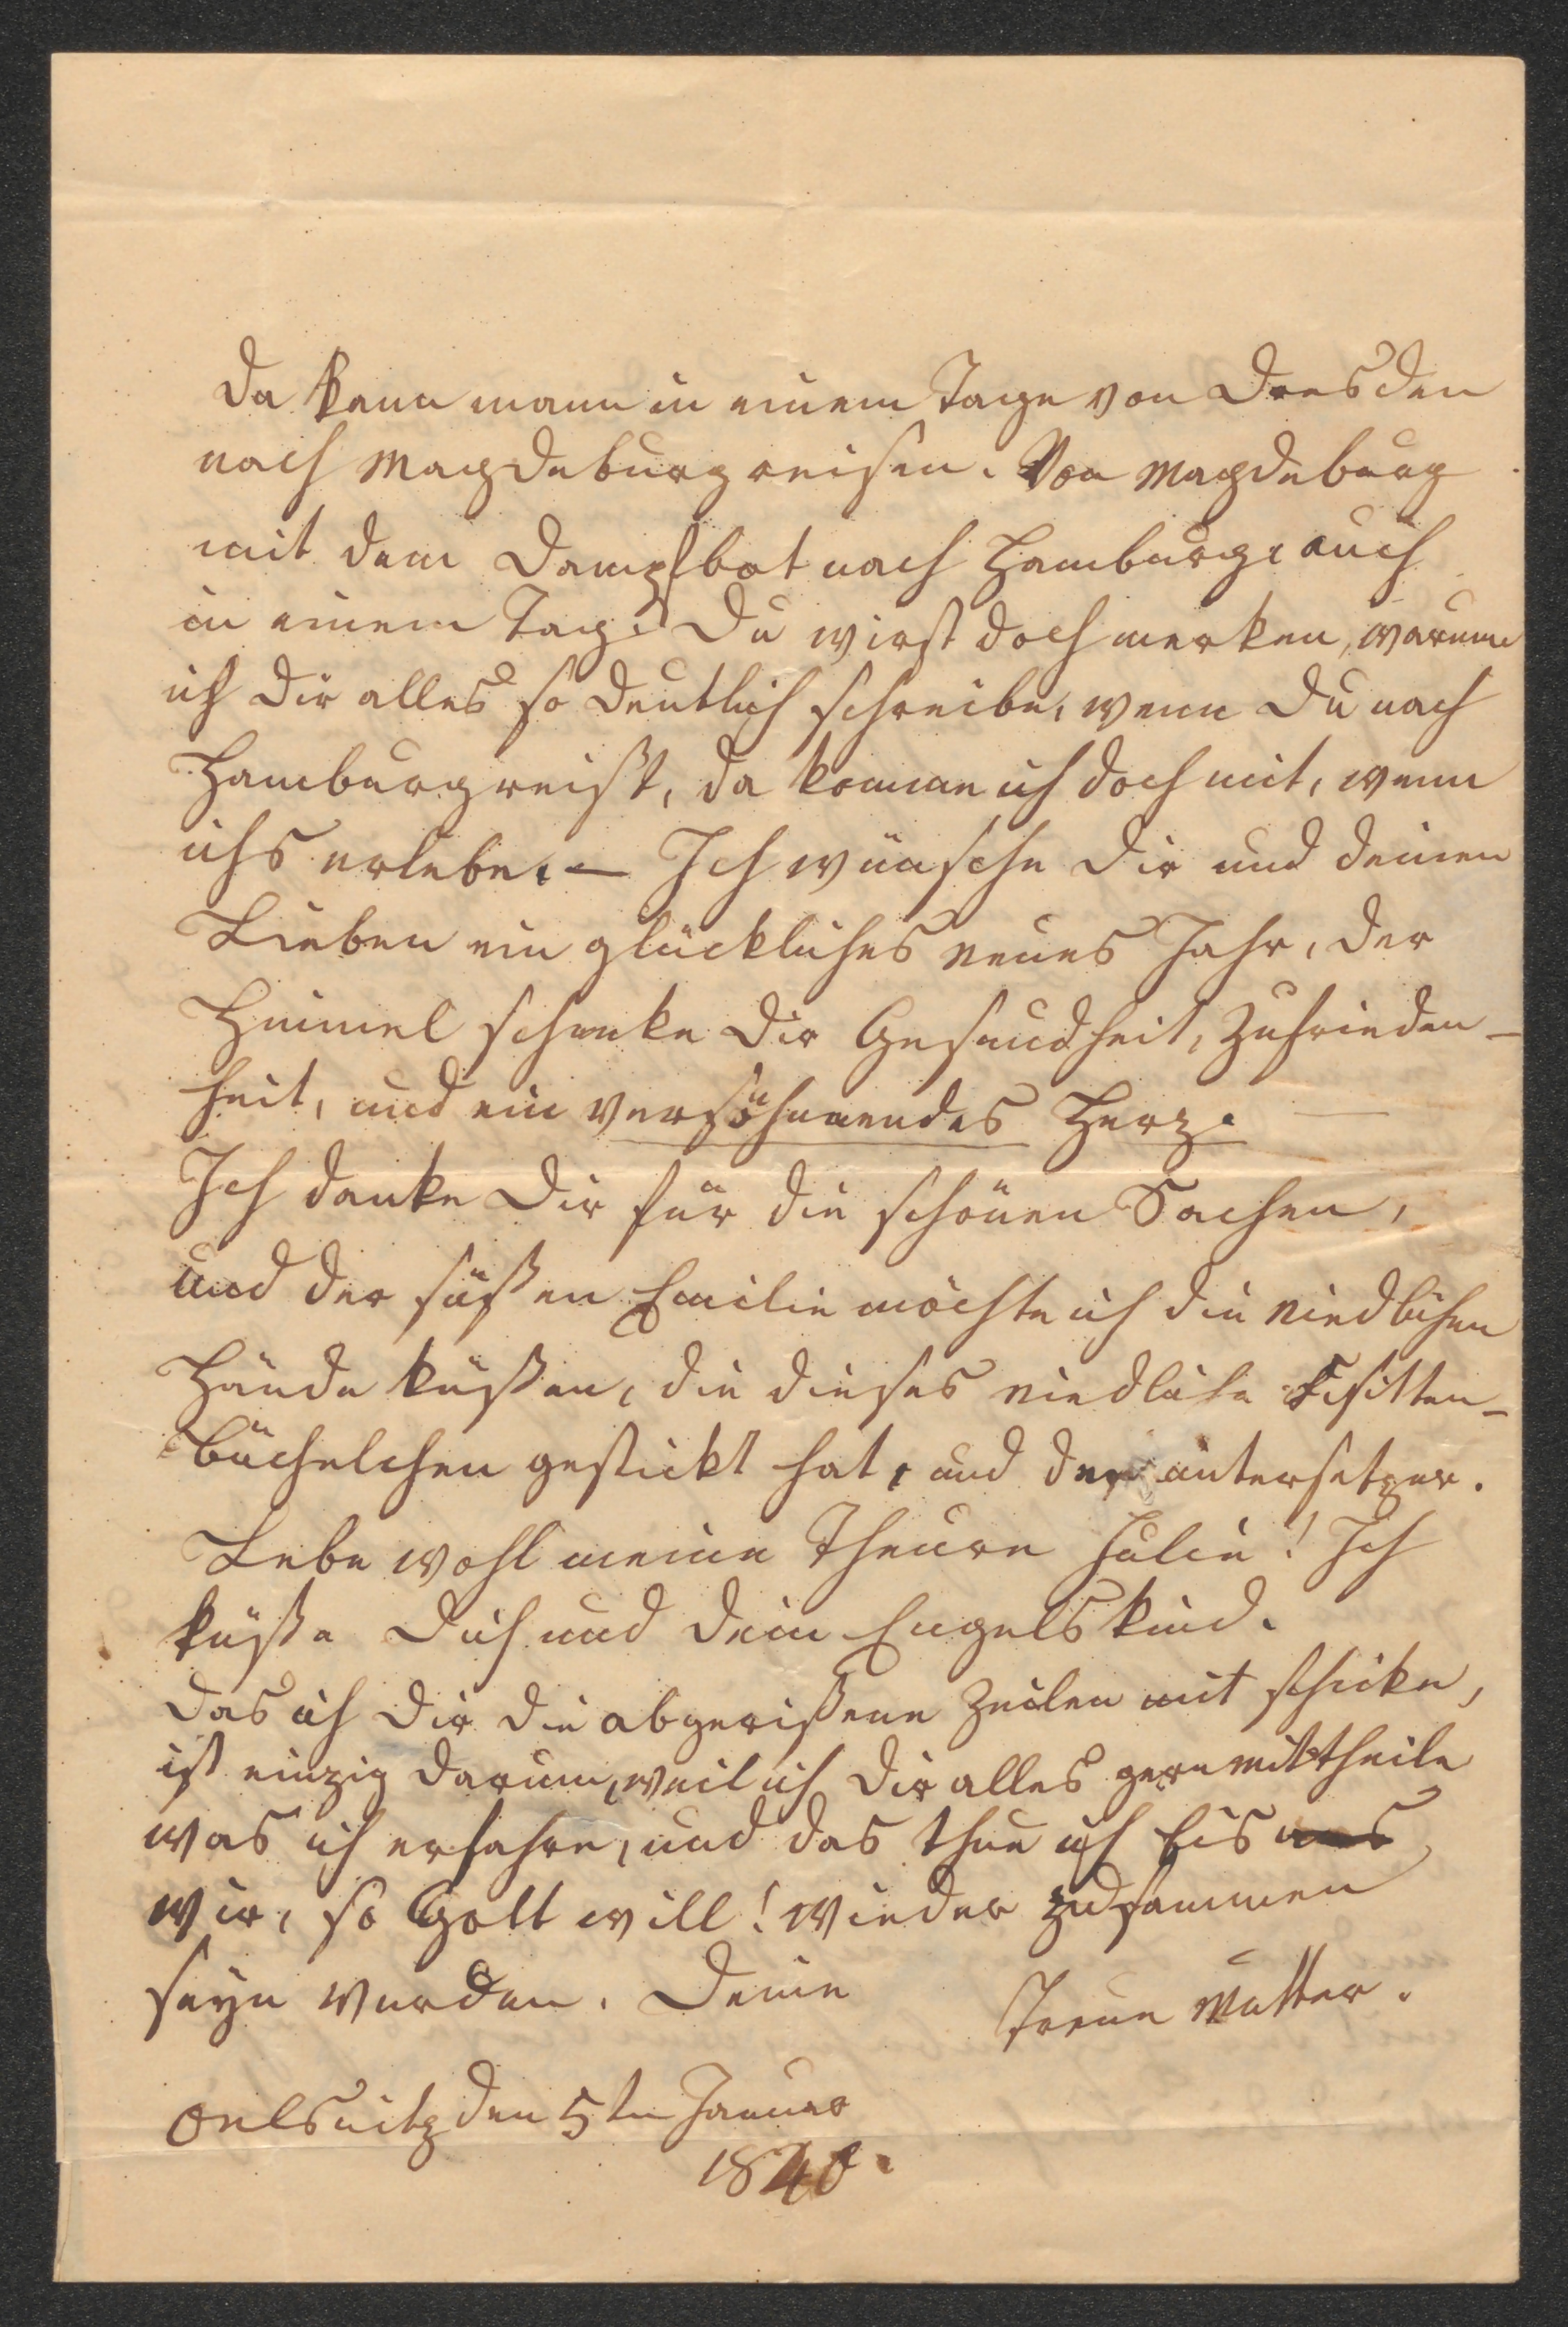 Da kann mann in einem Tage von Dresden
nach Magdeburg reisen. Von Magdeburg
mit dem Dampfbot nach Hamburg, auch
in einem Tag. Du wirst doch merken, warum
ich Dir alles so deutlich schreibe, wenn Du nach
Hamburg reißt, da komme ich doch mit, wenn
ichs erlebe. — Ich wünsche Dir und deinen
Lieben ein glückliches neues Jahr, der
Himmel schenke Dir Gesundheit, Zufrieden-
heit, und ein versöhnendes Herz. —
Ich danke Dir für die schönen Sachen,
und der süßen Emilie möchte ich die niedlichen
Hände küßen, die dieses niedliche Visitten-
büchelchen gestickt hat, und den untersetzer.
Lebe wohl meine Theure Julie! Ich
küße Dich und dein Engelskind.
Das ich Dir die abgerißene Zeilen mit schicke,
ist einzig darum, weil ich Dir alles gern mittheile
was ich erfahre, und das thue ich bis
wir, so Gott will! wieder zusammen
seyn werden. Deine treue Mutter.
Oelsnitz den 5ten Januar
1840.